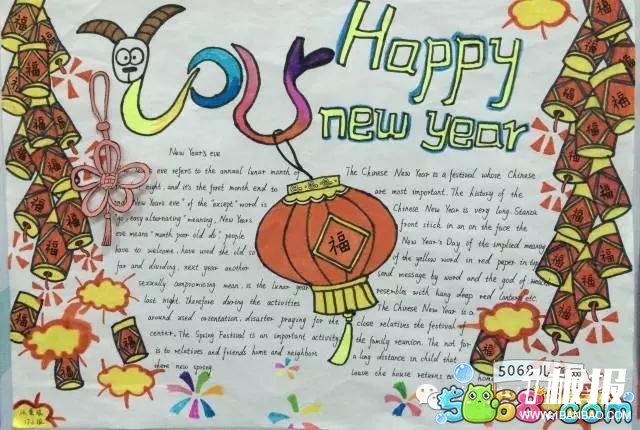 Happy
new year
New Year's eve
eve refers to the annual lunar month of
night, and it's the first month end to
and New Years eve" of the "except" word is
go, easy alternating" meaning, New Years
eve means "month poor old do", people
have to welcome, have used the old so
far and dividing, next year another
sexually compromising mean, is the lunar year
last night. Therefore during the activities
around used orientation, disaster praying for the
center. The Spring Festival is an important activity
is to relatives and friends home and neighbors
there new spring.
The Chinese New Year is a festival whose Chinese
are most important. The history of the
Chinese New Year is very long. Stanza
front stick in an on the face the
New Year's Day of the implied meaning
of the yellow word in red paper in
send message by word and the god of
resemble with hang deep red lantern etc.
The Chinese New Year is a
close relatives the festival
the family reunion. The not for
a long distance in child that
leave the house returns to home
福
福
福
5068儿
板报
WWW.41BANBAO.COM